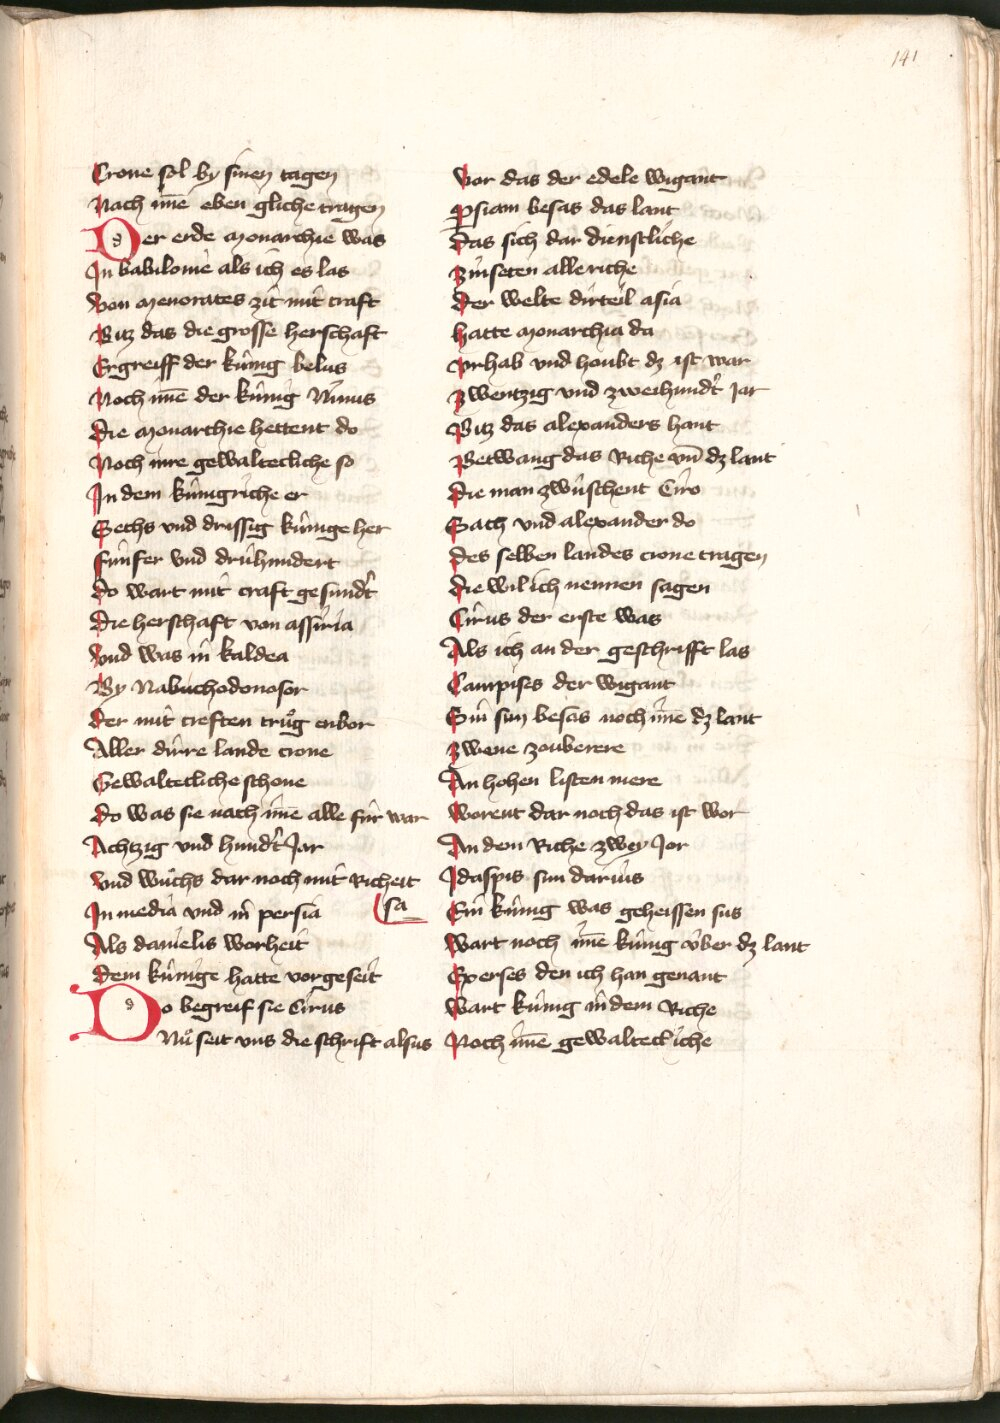 141
Crone sol by sinen tagen
Nach im̄e eben gliche tragen
Der erde monarchie was
In babilonie als ich es las
Von menorates zit mit craft
Bitz das die grosse herschaft
Ergreiff der kúnig belus
Noch im̄e der kúnig Ninus
Die monarchie hettent do
Noch inre gewaltecliche so
In dem kúnigriche er
Sechs vnd drissig kúnige her
fúnfer vnd drúhundert
Do wart mit craft gesundt
Die herschaft von assiria
Vnd was in kaldea
By Nabuchodonosor
Der mit creften trug enbor
Aller dirre lande crone
Gewaltecliche schone
Do was sie nach im̄e alle fúr war
Achtzig vnd hundt Jar
Vnd wuchs dar noch mit Richeit
In media vnd in persia
sa
Als danielis worheit
Dem kúnige hatte vorgeseit
Do begreif sie Cirus
Nu seit vns die schrift alsus
Vor das der edele wigant
Psiam besas das lant
Das sich dar dienstliche
Zinseten alle riche
Der welte dirteil asia
Hatte monarchia da
Vrhab vnd houbt dz ist war
Zwentzig vnd zweihundt Jar
Bitz das alexanders hant
Betwang das Riche vn̄ dz lant
Die man zwúschent Ciro
Sach vnd alexander do
Des selben landes crone tragen
Die wil ich nennen sagen
Cirus der erste was
Als ich an der geschrifft las
Campises der wigant
Sin sun besas noch im̄e dz lant
Zwene zouberere
An hohen listen mere
Worent dar noch das ist wor
An dem Riche zwey Jor
Idaspis sun darius
Ein kúnig was geheissen sus
Wart noch im̄e kúnig úber dz lant
Exerses den ich han genant
Wart kúnig in dem Riche
Noch im̄e gewaltecliche